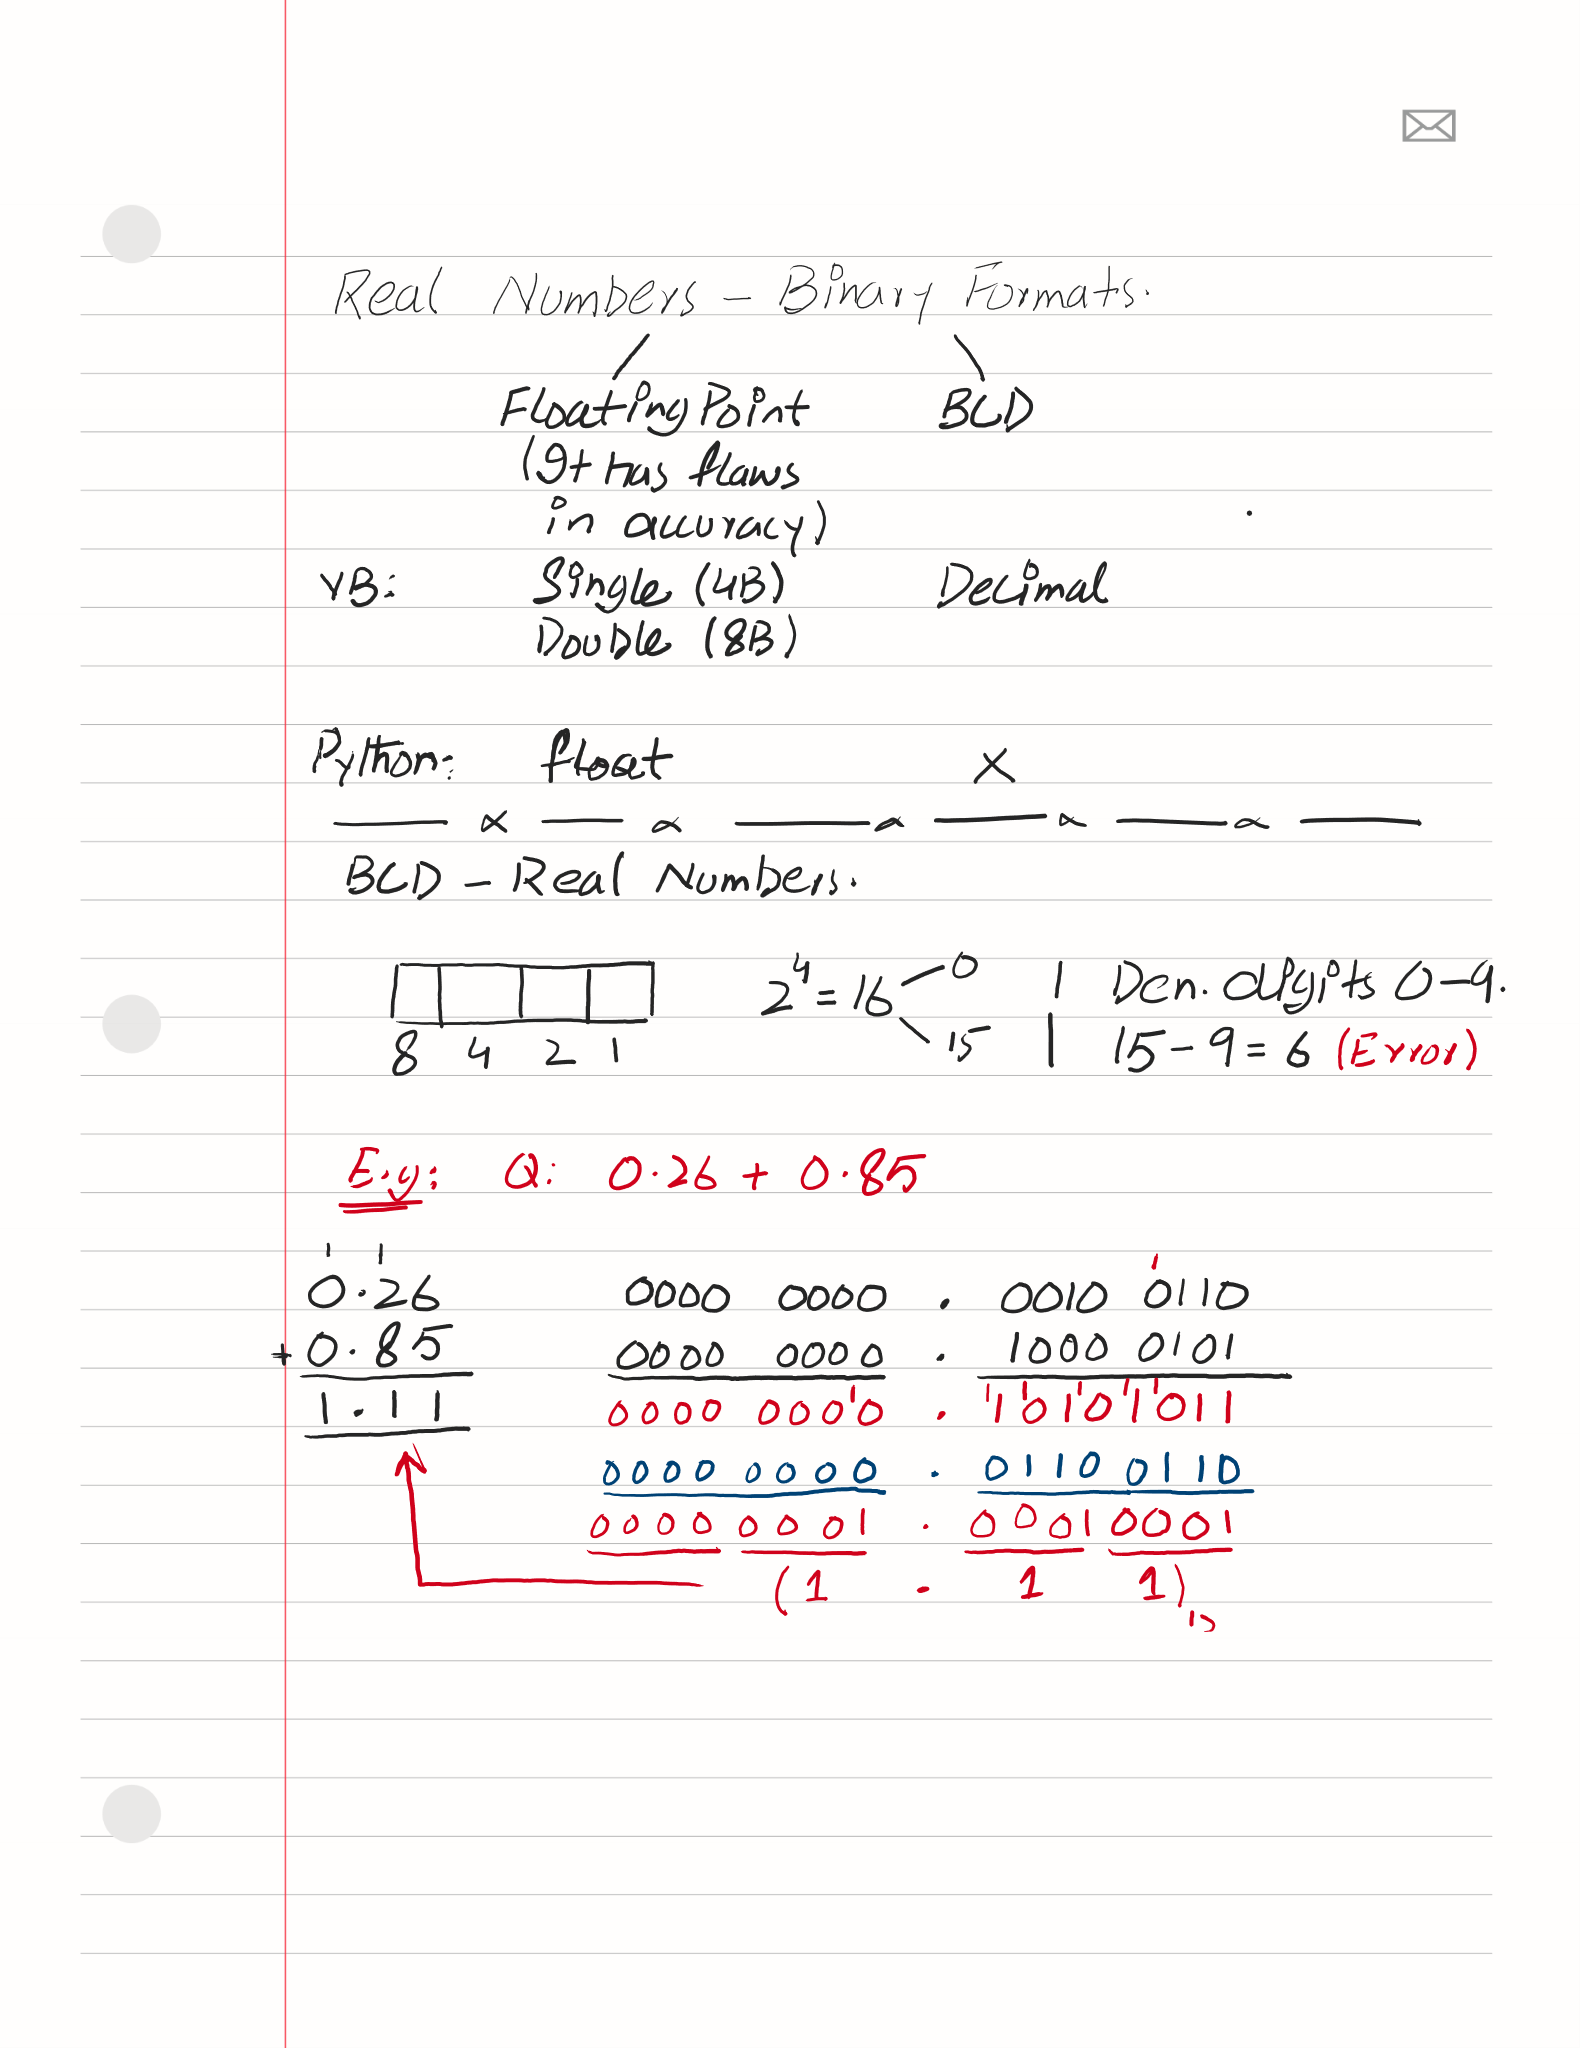 Real Numbers – Binary Formats.
Floating Point BCD
(It has flaws
in accuracy)
VB: Single (4B) Decimal
Double (8B)
Python: float X
BCD – Real Numbers.
2⁴ = 16 0 | Den. digits 0–9.
8 4 2 1 15 | 15 – 9 = 6 (Error)
E.g: Q: 0.26 + 0.85
1 1 1
0.26 0000 0000 . 0010 0110
+ 0.85 0000 0000 . 1000 0101
1.11 0000 0000 . 1010 1011
0000 0000 . 0110 0110
0000 0001 . 0001 0001
(1 . 1 1)